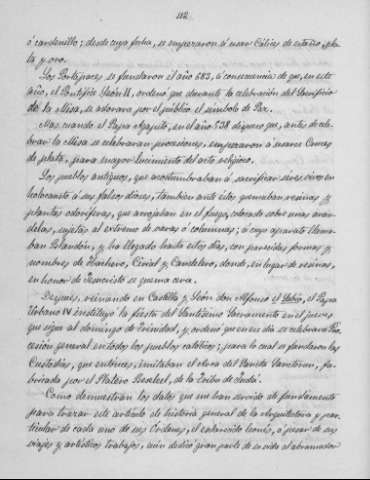 112.
ó cardenillo; desde cuya fecha, se empezaron á usar Cálices de estaño, pla-
ta y oro.
Los Portapaces, se fundaron el año 683, á consecuencia de que, en este
año, el Pontífice León II, ordenó que durante la celebración del Sacrificio
de la Misa, se adorara por el público el símbolo de Paz.
Mas, cuando el Papa Agapito, en el año 538 dispuso que, antes de cele-
brar la Misa se celebraran procesiones, empezaron á usarse Cruces
de plata, para mayor lucimiento del acto religioso.
Los pueblos antiguos, que acostumbraban á sacrificar seres vivos en
holocausto á sus falsos dioses, tambien ante éstos quemaban resinas y
plantas odoríferas, que arrojaban en el fuego, colocado sobre unas aran-
delas, sujetas al extremo de varas ó columnas; á cuyo aparato llama-
ban Blandón, y ha llegado hasta estos dias, con parecidas formas y
nombres de Hachero, Cirial y Candelero, donde, en lugar de resinas,
en honor de Jesucristo se quema cera.
Despues, reinando en Castilla y León don Alfonso el Sabio, el Papa
Urbano IV instituyó la fiesta del Santísimo Sacramento en el jueves
que sigue al domingo de Trinidad, y ordenó que en ese dia se celebrara Pro-
cesión general en todos los pueblos católicos; para lo cual se fundaron las
Custodias, que entónces, imitaban el Arca del Sancta Sanctorum, fa-
bricada por el Platero Beseleel, de la Tribu de Judá.
Como demuestran los datos que me han servido de fundamento
para trazar este artículo de historia general de la Arquitectura y par-
ticular de cada uno de sus Ordenes, el esclarecido leonés, á pesar de sus
viajes y artísticos trabajos, aún dedicó gran parte de su vida al abrumador